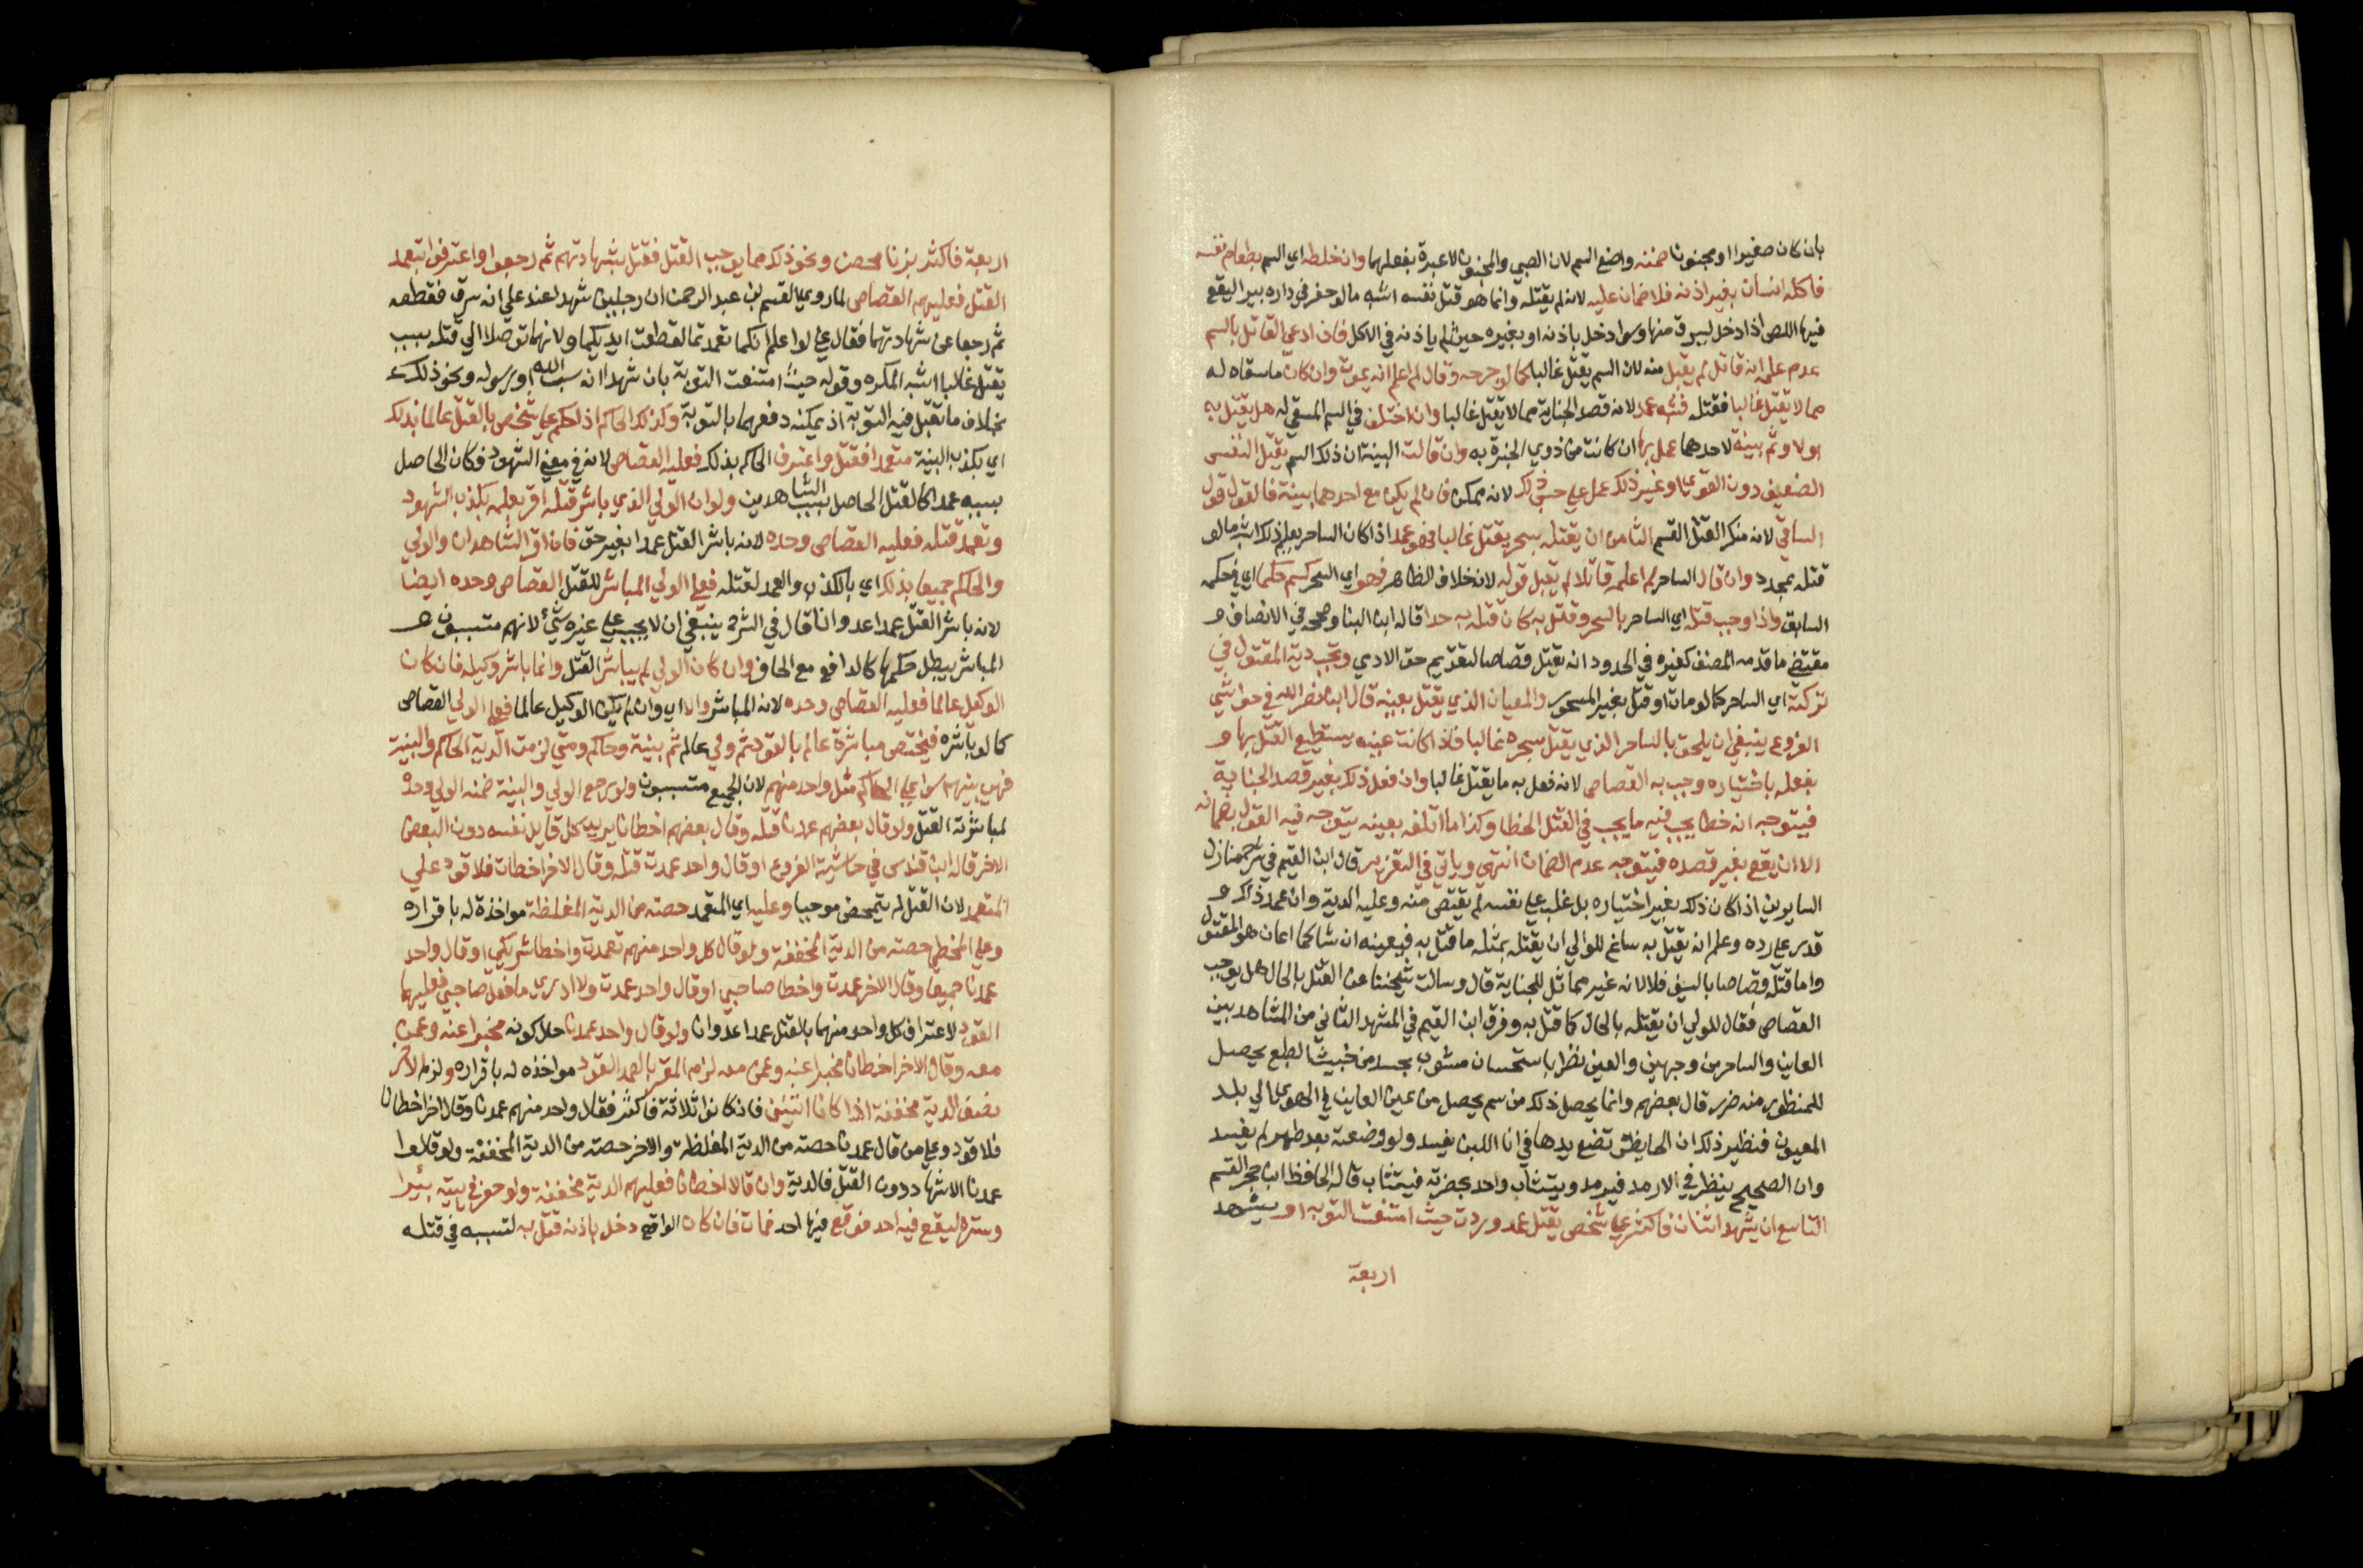 بان كان صغيرا او مجنونا ضمنه واضع السم لان الصبي والمجنون لا عبرة بفعلهما وان خلطه اي السم بطعام نفسه
فاكله انسان بغير اذنه فلا ضمان عليه لانه لم يقتله وانما هو قتل نفسه اشبه ما لو حفر في داره بيرا ليقع
فيها اللص اذا دخل ليسرق منها وسوا دخل باذنه او بغيره حيث لم ياذنه في الاكل فان ادعي القاتل بالسم
عدم علمه انه قاتل لم يقبل منه لان السم يقتل غالبا كما لو جرحه وقال لم اعلم انه يموت وان كان ما سقاه له
مما لا يقتل غالبا فقتله فشبه عمد لانه قصد الجناية مما لا يقتل غالبا وان اختلف في السم المسقي له هل يقتل به
او لا وثم بينة لاحدهما عمل بها ان كانت من ذوي الخبرة به وان قالت البينة ان ذلك السم يقتل النفس
الضعيف دون القوي او غير ذلك عمل علي حسب ذلك لانه ممكن فان لم يكن مع احدهما بينة فالقول قول
الساقي لانه منكر القتل القسم الثامن ان يقتله بسحر يقتل غالبا فهو عمد اذا كان الساحر يعلم ذلك اشبه ما لو
قتله بمحدد وان قال الساحر لم اعلمه قاتلا لم يقبل قوله لانه خلاف الظاهر فهو اي السحر كسم حكما اي في حكمه
السابق واذا وجب قتله اي الساحر بالسحر وقتل به كان قتله به حدا قاله ابن البنا وصححه في الانصاف و
مقتضي ما قدمه المصنف كغيره في الحدود انه يقتل قصاصا لتقديم حق الادمي وتجب دية المقتول في
تركته اي الساحر كما لو مات او قتل بغير المسحور والمعيان الذي يقتل بعينه قال ابن نصر الله في حواشي
الفروع ينبغي ان يلحق بالساحر الذي يقتل بسحره غالبا فاذا كانت عينه يستطيع القتل بها و
يفعله باختياره وجب به القصاص لانه فعل به ما يقتل غالبا وان فعل ذلك بغير قصد الجناية
فيتوجه انه خطا يجب فيه ما يجب في القتل الخطا وكذا ما اتلفه بعينه يتوجه فيه القول بضمانه
الا ان يقع بغير قصده فيتوجه عدم الضمان انتهي وياتي في التعزير قال ابن القيم في شرح منازل
السايرين اذا كان ذلك بغير اختياره بل غلب علي نفسه لم يقتص منه وعليه الدية وان عمد ذلك و
قدر علي رده وعلم انه يقتل به ساغ للوالي ان يقتله بمثله ما قتل به فيعينه ان شا كما اعان هو المقتول
واما قتله قصاصا بالسيف فلا لانه غير مماثل للجناية قال وسالت شيخنا عن القتل بالحال هل يوجب
القصاص فقال للولي ان يقتله بالحال كما قتل به وفرق ابن القيم في المشهد الثاني من المشاهد بين
العاين والساحر من وجهين والعين نظر باستحسان مشوب بحسد من خبيث الطبع يحصل
للمنظور منه ضرر قال بعضهم وانما يحصل ذلك من سم يحصل من عين العاين في الهوي الي بلد
المعيون فنظير ذلك ان الحايض تضع يدها في انا اللبن يفسد ولو وضعته بعد طهر لم يفسد
وان الصحيح ينظر في الارمد فيرمد ويتثاب واحد بحضرته فيتثاب قاله الحافظ ابن حجر القسم
التاسع ان يشهد اثنان فاكثر علي شخص بقتل عمد وردت حيث امتنعت التوبة او يشهد
اربعة
اربعة فاكثر بزنا محصن ونحو ذلك مما يوجب القتل فقتل بشهادتهم ثم رجعوا واعترفوا بتعمد
القتل فعليهم القصاص لما روي القسم بن عبد الرحمن ان رجلين شهدا عند علي انه سرق فقطعه
ثم رجعا عن شهادتهما فقال علي لو اعلم انكما تعمدتما لقطعت ايديكما ولانهما توصلا الي قتله بسبب
يقتل غالبا اشبه المكره وقوله حيث امتنعت التوبة بان شهدا انه سب الله او رسوله ونحو ذلك
بخلاف ما تقبل فيه التوبة اذ يمكنه دفعهما بالتوبة وكذلك الحاكم اذا حكم علي شخص بالقتل عالما بذلك
اي بكذب البينة متعمدا فقتل واعترف الحاكم بذلك فعليه القصاص لانه في معني الشهود فكان الحاصل
بسببه عمدا كالقتل الحاصل بسبب الشاهدين ولو ان الولي الذي باشر قتله اقر بعلمه بكذب الشهود
وتعمد قتله فعليه القصاص وحده لانه باشر القتل عمدا بغير حق فان اقر الشاهدان والولي
والحاكم جميعا بذلك اي بالكذب والعمد لقتله فعلي الولي المباشر للقتل القصاص وحده ايضا
لانه باشر القتل عمدا عدوانا قال في الشرح ينبغي ان لا يجب علي غيره شئ لانهم متسببون و
المباشر يبطل حكمها كالدافع مع الحافر وان كان الولي لم يباشر القتل وانما باشر وكيله فان كان
الوكيل عالما فعليه القصاص وحده لانه المباشر والا اي وان لم يكن الوكيل عالما فعلي الولي القصاص
كما لو باشره فيختص مباشرة عالم بالقود ثم ولي عالم ثم بينة وحاكم ومتي لزمت الدية الحاكم والبينة
فهي بينهم سوا علي الحاكم مثل واحد منهم لان الجميع متسببون ولو رجع الولي والبينة ضمنه الولي وحده
لمباشرته القتل ولو قال بعضهم عمدنا قتله وقال بعضهم اخطانا يريد كل قايل نفسه دون البعض
الاخر قاله ابن قندس في حاشية الفروع او قال واحد عمدت قتله وقال الاخر اخطات فلا قود علي
المتعمد لان القتل لم يتمحض موجبا وعليه اي المتعمد حصته من الدية المغلظة مواخذة له باقراره
وعلي المخطي حصته من الدية المخففة ولو قال كل واحد منهم تعمدت واخطا شريكي او قال واحد
عمدنا جميعا وقال الاخر عمدت واخطا صاحبي او قال واحد عمدت ولا ادري ما فعل صاحبي فعليهما
القود لاعتراف كل واحد منهما بالقتل عمدا عدوانا ولو قال واحد عمدنا حال كونه مخبرا عنه وعمن
معه وقال الاخر اخطانا مخبرا عنه وعمن معه لزم المقر بالعمد القود مواخذه له باقراره ولزم الاخر
نصف الدية مخففة اذا كانا اثنين فان كانوا ثلاثة فاكثر فقال واحد منهم عمدنا وقال اخر اخطانا
فلا قود وعلي من قال عمدنا حصته من الدية المغلظة والاخر حصته من الدية المخففة ولو قالوا
عمدنا الاشهاد دون القتل فالدية وان قالا اخطانا فعليهم الدية مخففة ولو حفر في بيته بئرا
وستره ليقع فيه احد فوقع فيها احد فمات فان كان الواقع دخل باذنه قتل به لتسببه في قتله